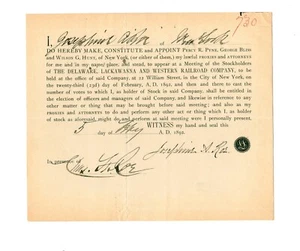 I, Josephine of New York
DO HEREBY MAKE, CONSTITUTE AND APPOINT PERCY R. PYNE, GEORGE BLISS
AND WILSON G. HUNT, of New York, (or either of them,) my lawful PROXIES and ATTORNEY
for me and in my name, place, and stead, to appear at a Meeting of the Stockholders
of THE DELAWARE, LACKAWANNA AND WESTERN RAILROAD COMPANY, to be
held at the office of said Company, at 52 William Street, in the City of New York, on
the twenty-third (23d) day of February, A. D. 1892, and then and there to cast the
number of votes to which I, as holder of Stock in said Company, shall be entitled in the
election of officers and managers of said Company, and likewise in reference to any
other matter or thing that may be brought before said meeting; and also as my
PROXIES AND ATTORNEY to do and perform any other act or thing which I, as holder
of stock as aforesaid, might do and perform at said meeting were I personally present.
WITNESS my hand and seal this
5 day of A. D. 1892.
Josephine A.